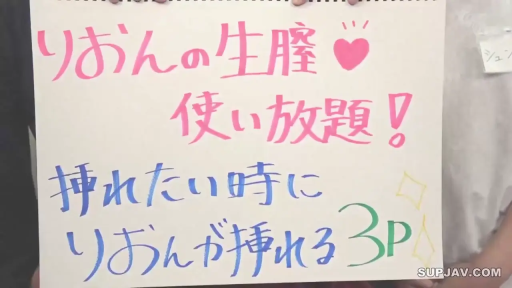 りおんの生膣♥
使い放題!
挿れたい時に
りおんが挿れる3P
SUPJAV.COM